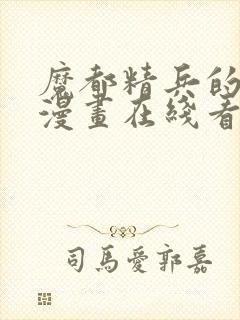 魔都精兵的
漫畫在綫看
司馬愛郭嘉